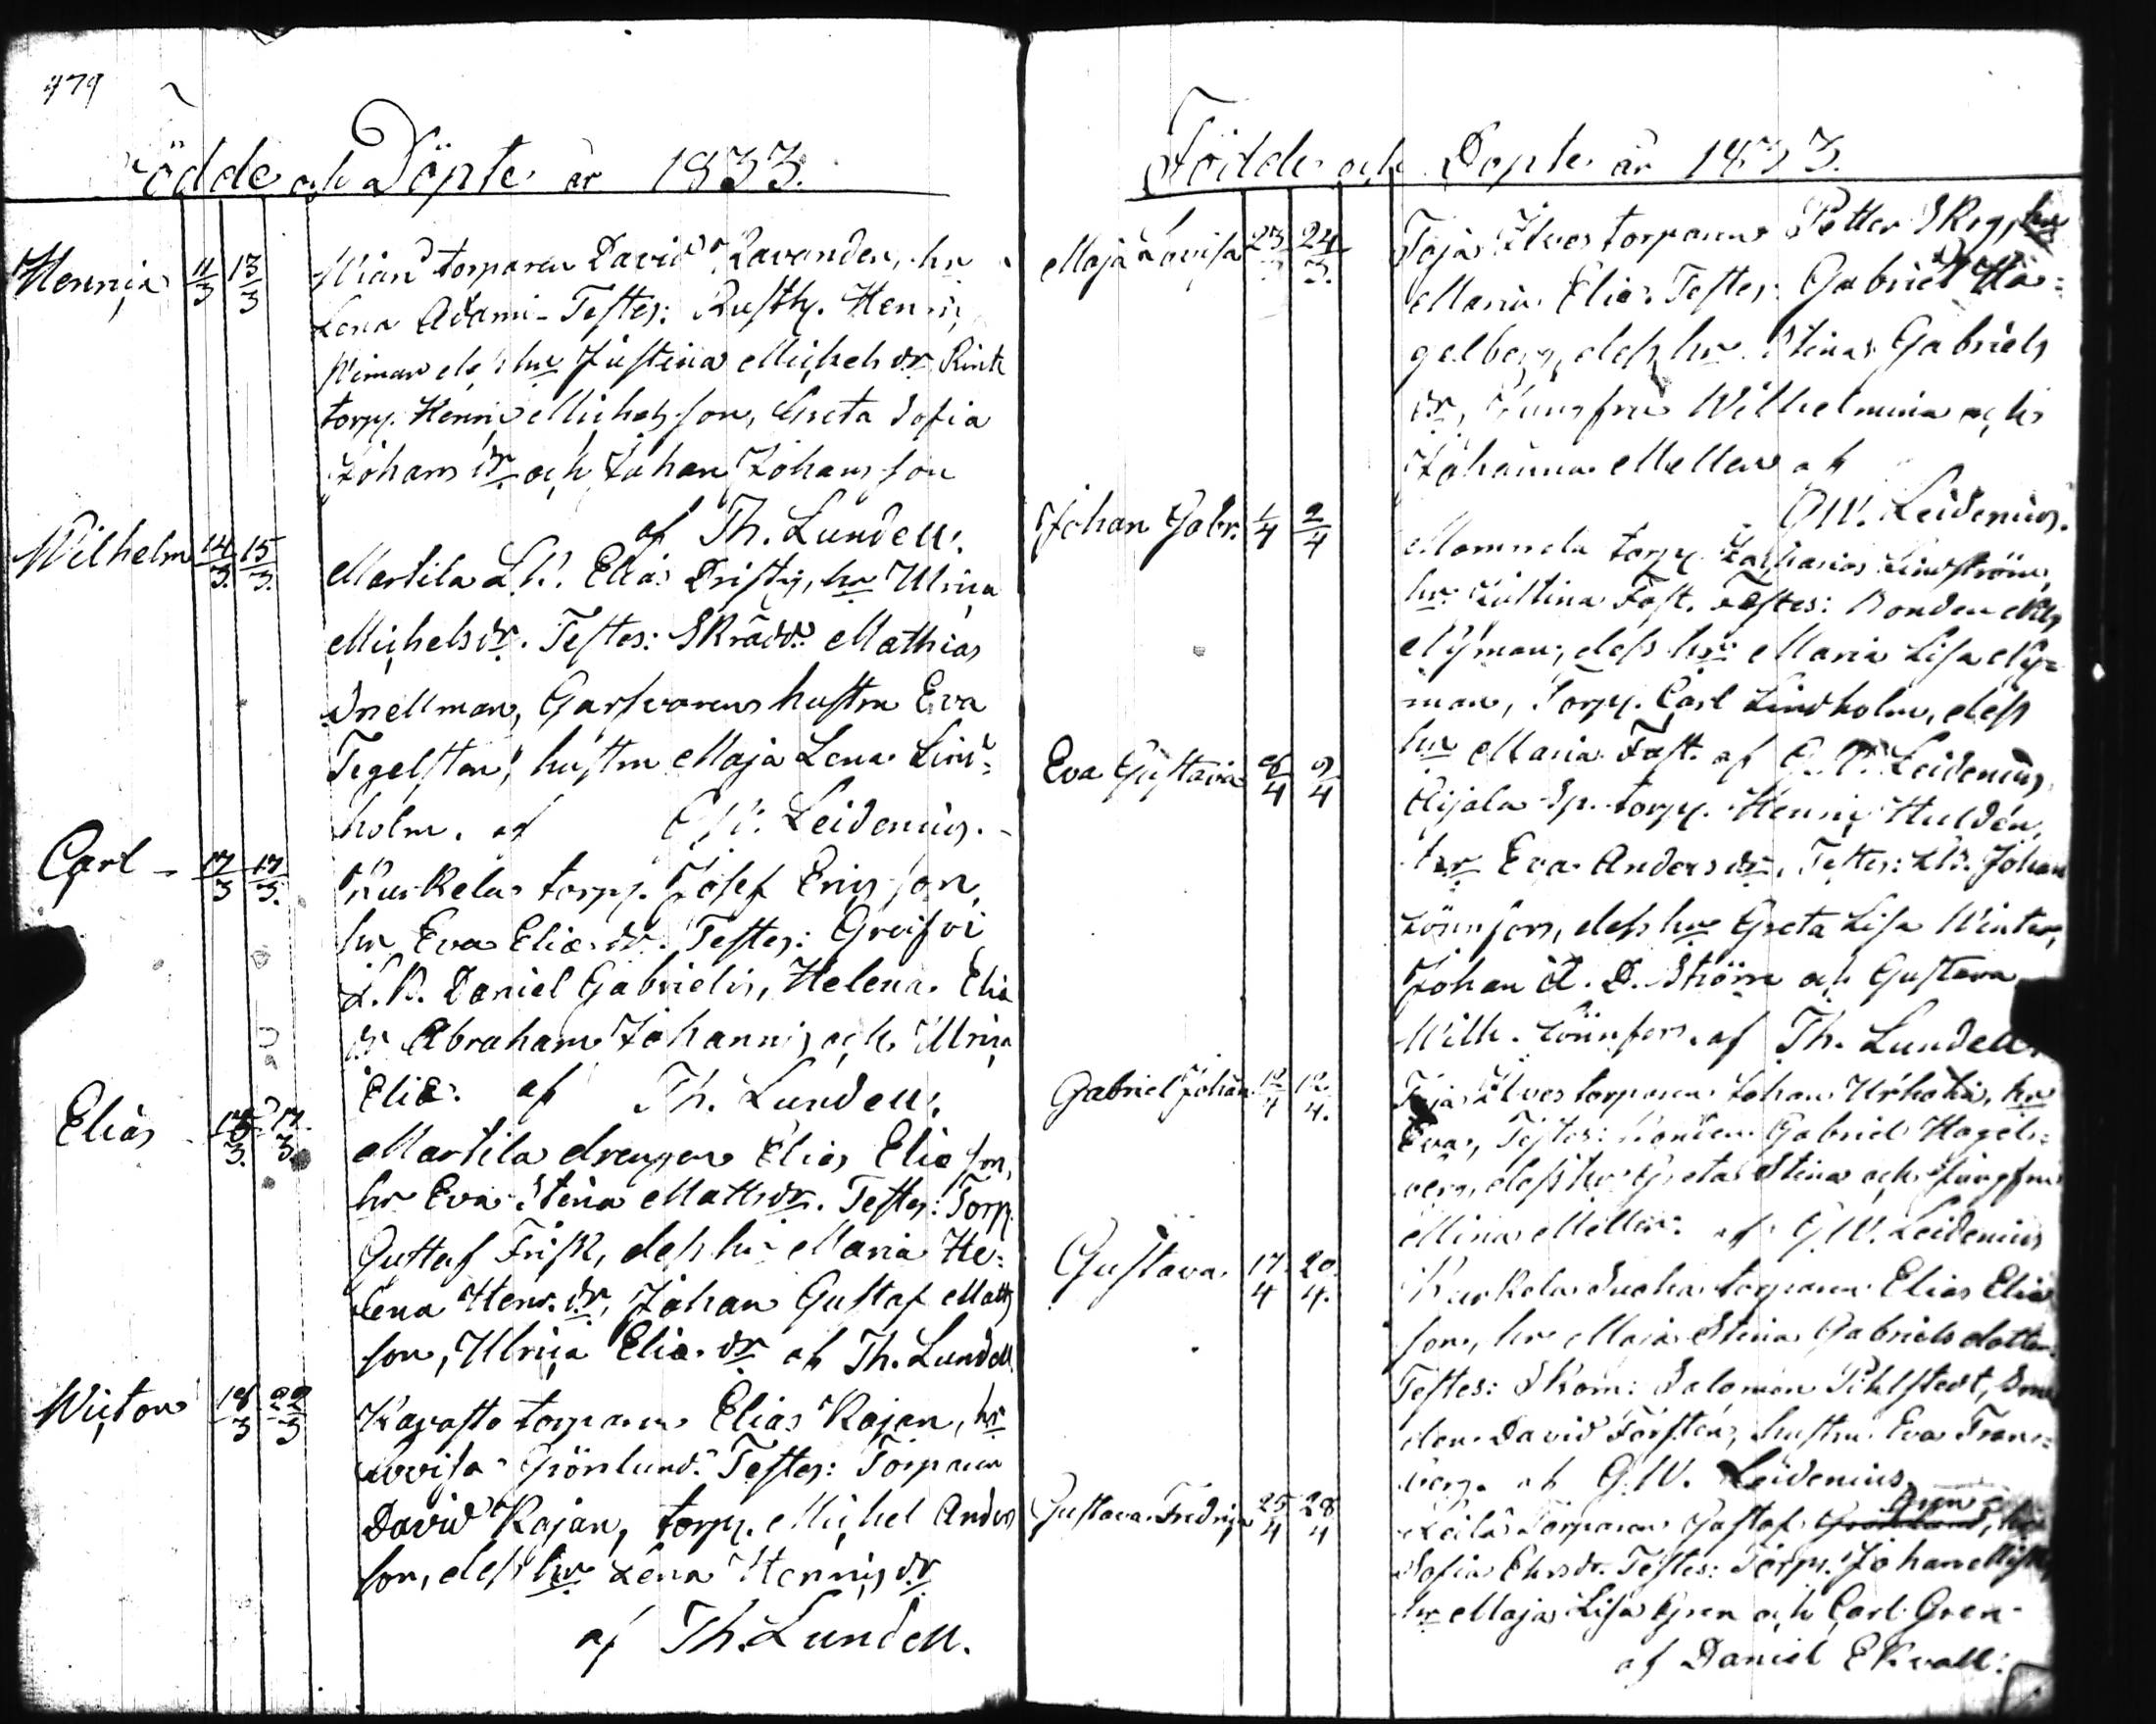 479
Födde och Döpte år 1833.
Henric 11/3 13/3 torparen David Ravander, hr
Lena Adami- Testes: Rusth. Henric
Wiman dess hr Justina Michelsdr
torp. Henric Michelsson, Greta Sofia
Johansdr och Johan Johansson
af Th. Lundell.
Wilhelm 14/3 15/3 Martila Elias hr Ulrica
Michelsdr. Testes: Skrädd. Mathias
Garfvarens hustru Eva
Tegelsten, hustru Maja Lena Lind=
holm. af G.W. Leidenius.
Carl 17/3 17/3. Kurkela torp. Josef Ericsson,
hr Eva Eliædr. Testes:
Daniel Gabrielis, Helena Eliæ
dr Abraham Johannis och Ulrica
Eliæ: af Th. Lundell.
Elias 3. 17/3. Martila drengen Elias Eliæson,
hr Eva Stina Mattsdr. Testes: Torp.
Gustaf Frisk, dess hr Maria He=
lena Henr.dr, Johan Gustaf Matts
son, Ulrica Eliædr af Th. Lundell.
Wictor 18/3 22/3 torparen Elias Kajan, hr
Lovisa Grönlund. Testes: Torparen
David Kajan, torp. Michel Anders
son, dess hr Lena Henricsdr
af Th. Lundell.
Födde och Döpte år 1833.
Maja Lovisa 23/3 24/3. Toja Ilves torparen Petter Skog, hr
Maria Eliæ. Testes: Gabriel Ha=
gelberg, dess hr. Stina Gabriels
dr, Jungfru Wilhelmina och
Johanna Mellen af
G.W. Leidenius.
Johan Gabr. 1/4 2/4 torp. Zacharias Lindström,
hr. Justina Fast. Testes: Bonden
Nyman, dess hr Maria Lisa Ny=
man, Torp. Carl Lindholm, dess
hr Maria Fast. af G.W. Leidenius.
Eva Gustava 8/4 9/4 torp. Henric Huldén,
hr Eva Andersdr, Testes: Johan
Lönnfors, dess hr Greta Lisa Winter,
Johan D. och Gustava
Wilh. Lönnfors. af Th. Lundell
Gabriel Johan 12/4 12/4. Toja Ilves torparen Johan hr
Eva, Testes: Bonden Gabriel Hagel=
berg, dess hr Greta Stina och Jungfru
Mina Mellen. af G.W. Leidenius
Gustava 17/4 20/4. Kurkela torparen Elias Eliæ
son, hr Maja Stina Gabrielsdotter.
Testes: Skom: Salomon
David Forstén, hustru Eva
berg. af G.W. Leidenius.
Gren
Gustava Fredrica 25/4 28/4 torparen Gustaf hr
Sofia Testes: Torp. Johan
hr Maja Lisa Gren och Carl Gren.
af Daniel Ekvall.